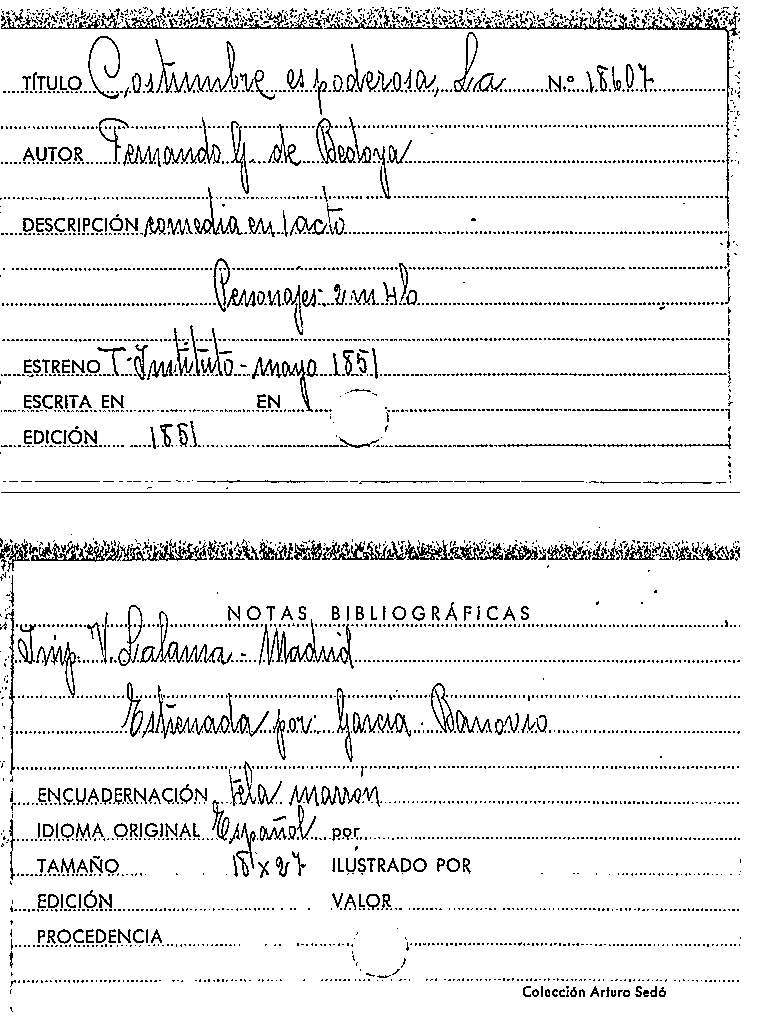 TÍTULO Costumbre es poderosa, La N.º 18607
AUTOR Fernando G. de Bedoya
DESCRIPCIÓN comedia en 1 acto
Personajes: 2 m 4 h
ESTRENO T. Instituto - mayo 1851
ESCRITA EN EN
EDICIÓN 1851
NOTAS BIBLIOGRÁFICAS
Imp. V. Lalama - Madrid
Estrenada por: García - Banovio
ENCUADERNACIÓN tela marrón
IDIOMA ORIGINAL Español por
TAMAÑO 18 x 27 ILUSTRADO POR
EDICIÓN VALOR
PROCEDENCIA
Colección Arturo Sedó